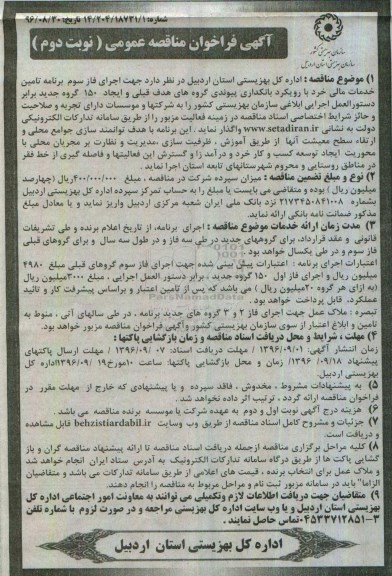 شماره: ۱۴/۲۰۴/۱۸۷۳۱/۱ تاریخ: ۹۶/۰۸/۳۰
سازمان بهزیستی کشور
سازمان بهزیستی استان اردبیل
آگهی فراخوان مناقصه عمومی ( نوبت دوم )
۱) موضوع مناقصه : اداره کل بهزیستی استان اردبیل در نظر دارد جهت اجرای فاز سوم برنامه تامین
خدمات مالی خرد با رویکرد بانکداری پیوندی گروه های هدف قبلی و ایجاد ۱۵۰ گروه جدید برابر
دستورالعمل اجرایی ابلاغی سازمان بهزیستی کشور را به شرکتها و موسسات دارای تجربه و صلاحیت
و حائز شرایط اختصاصی اسناد مناقصه در زمینه فعالیت مزبور را از طریق سامانه تدارکات الکترونیکی
دولت به نشانی www.setadiran.ir واگذار نماید . این برنامه با هدف توانمند سازی جوامع محلی و
ارتقاء سطح معیشت آنها از طریق آموزش ، ظرفیت سازی ،مدیریت و نظارت بر مجریان محلی با
محوریت ایجاد توسعه کسب و کار خرد و درآمد زا و گسترش این فعالیتها و فاصله گیری از خط فقر
در مناطق روستایی و محروم شهرستانهای تابعه استان اجرا نماید .
۲) نوع و مبلغ تضمین مناقصه : میزان سپرده شرکت در مناقصه ، مبلغ ۴۰۰/۰۰۰/۰۰۰ریال (چهارصد
میلیون ریال ) بوده و متقاضی می بایست یا مبلغ را به حساب تمرکز سپرده اداره کل بهزیستی اردبیل
بشماره ۲۱۷۳۴۵۰۸۴۱۰۰۸ نزد بانک ملی ایران شعبه مرکزی اردبیل واریز نماید و یا معادل مبلغ
مذکور ضمانت نامه بانکی ارائه نماید.
۳) مدت زمان ارائه خدمات موضوع مناقصه : اجرای برنامه، از تاریخ اعلام برنده و طی تشریفات
قانونی و عقد قرارداد، برای گروههای جدید در طی سه فاز و در طول سه سال و برای گروهای قبلی
فاز سوم و در طی یکسال خواهد بود.
اعتبارات اجرای برنامه : اعتبارات پیش بینی شده جهت اجرای فاز سوم گروهای قبلی مبلغ ۴۹۸۰
میلیون ریال و اجرای فاز اول ۱۵۰ گروه جدید ، برابر دستور العمل اجرایی ، مبلغ ۳۰۰۰میلیون ریال
(به ازای هر گروه ۲۰میلیون ریال ) می باشد که پس از تامین اعتبار و براساس پیشرفت کار و تائید
عملکرد، قابل پرداخت خواهد بود.
تبصره : ملاک عمل جهت اجرای فاز ۲ و ۳ گروه های جدید برنامه ، در طی سالهای آتی ، منوط به
تامین و ابلاغ اعتبار از سوی سازمان بهزیستی کشور و آگهی فراخوان مناقصه مزبور خواهد بود.
۴) مهلت ، شرایط و محل دریافت اسناد مناقصه و زمان بازگشایی پاکتها :
زمان انتشار آگهی: ۱۳۹۶/۰۹/۰۱ / مهلت دریافت اسناد: ۰۷ /۱۳۹۶/۰۹ / مهلت ارسال پاکتهای
پیشنهاد ۱۸ /۰۹/ ۱۳۹۶/ زمان و محل بازگشایی پاکتها: ساعت ۱۰مورخ۱۹ /۱۳۹۶/۰۹اداره کل
بهزیستی اردبیل.
۵) به پیشنهادات مشروط ، مخدوش ، فاقد سپرده و یا پیشنهادی که خارج از مهلت مقرر در
فراخوان مناقصه ارائه گردد ، ترتیب اثر داده نخواهد شد.
۶) هزینه درج آگهی نوبت اول و دوم به عهده شرکت یا موسسه برنده مناقصه می باشد .
۷) جزئیات و مشروح کامل اسناد مناقصه از طریق وب وسایت behzistiardabil.ir قابل مشاهده
و دریافت است.
۸) کلیه مراحل برگزاری مناقصه ازجمله دریافت اسناد مناقصه تا ارائه پیشنهاد مناقصه گران و باز
گشایی پاکت ها از طریق درگاه سامانه تدارکات الکترونیک به آدرس ستاد ایران انجام خواهد شد
و ملاک عمل برای انتخاب برنده ، قیمت های اعلامی از طریق سامانه تدارکات می باشد و متقاضیان
الزاما" باید در سامانه مزبور ثبت نام و مراحل مربوط به مناقصه را انجام دهند.
۹) متقاضیان جهت دریافت اطلاعات لازم وتکمیلی می توانند به معاونت امور اجتماعی اداره کل
بهزیستی استان اردبیل و یا وب سایت اداره کل بهزیستی مراجعه و در صورت لزوم با شماره تلفن
۳-۰۴۵۳۳۷۱۲۸۵۱تماس حاصل نمایند .
اداره کل بهزیستی استان اردبیل
ParsNamadData